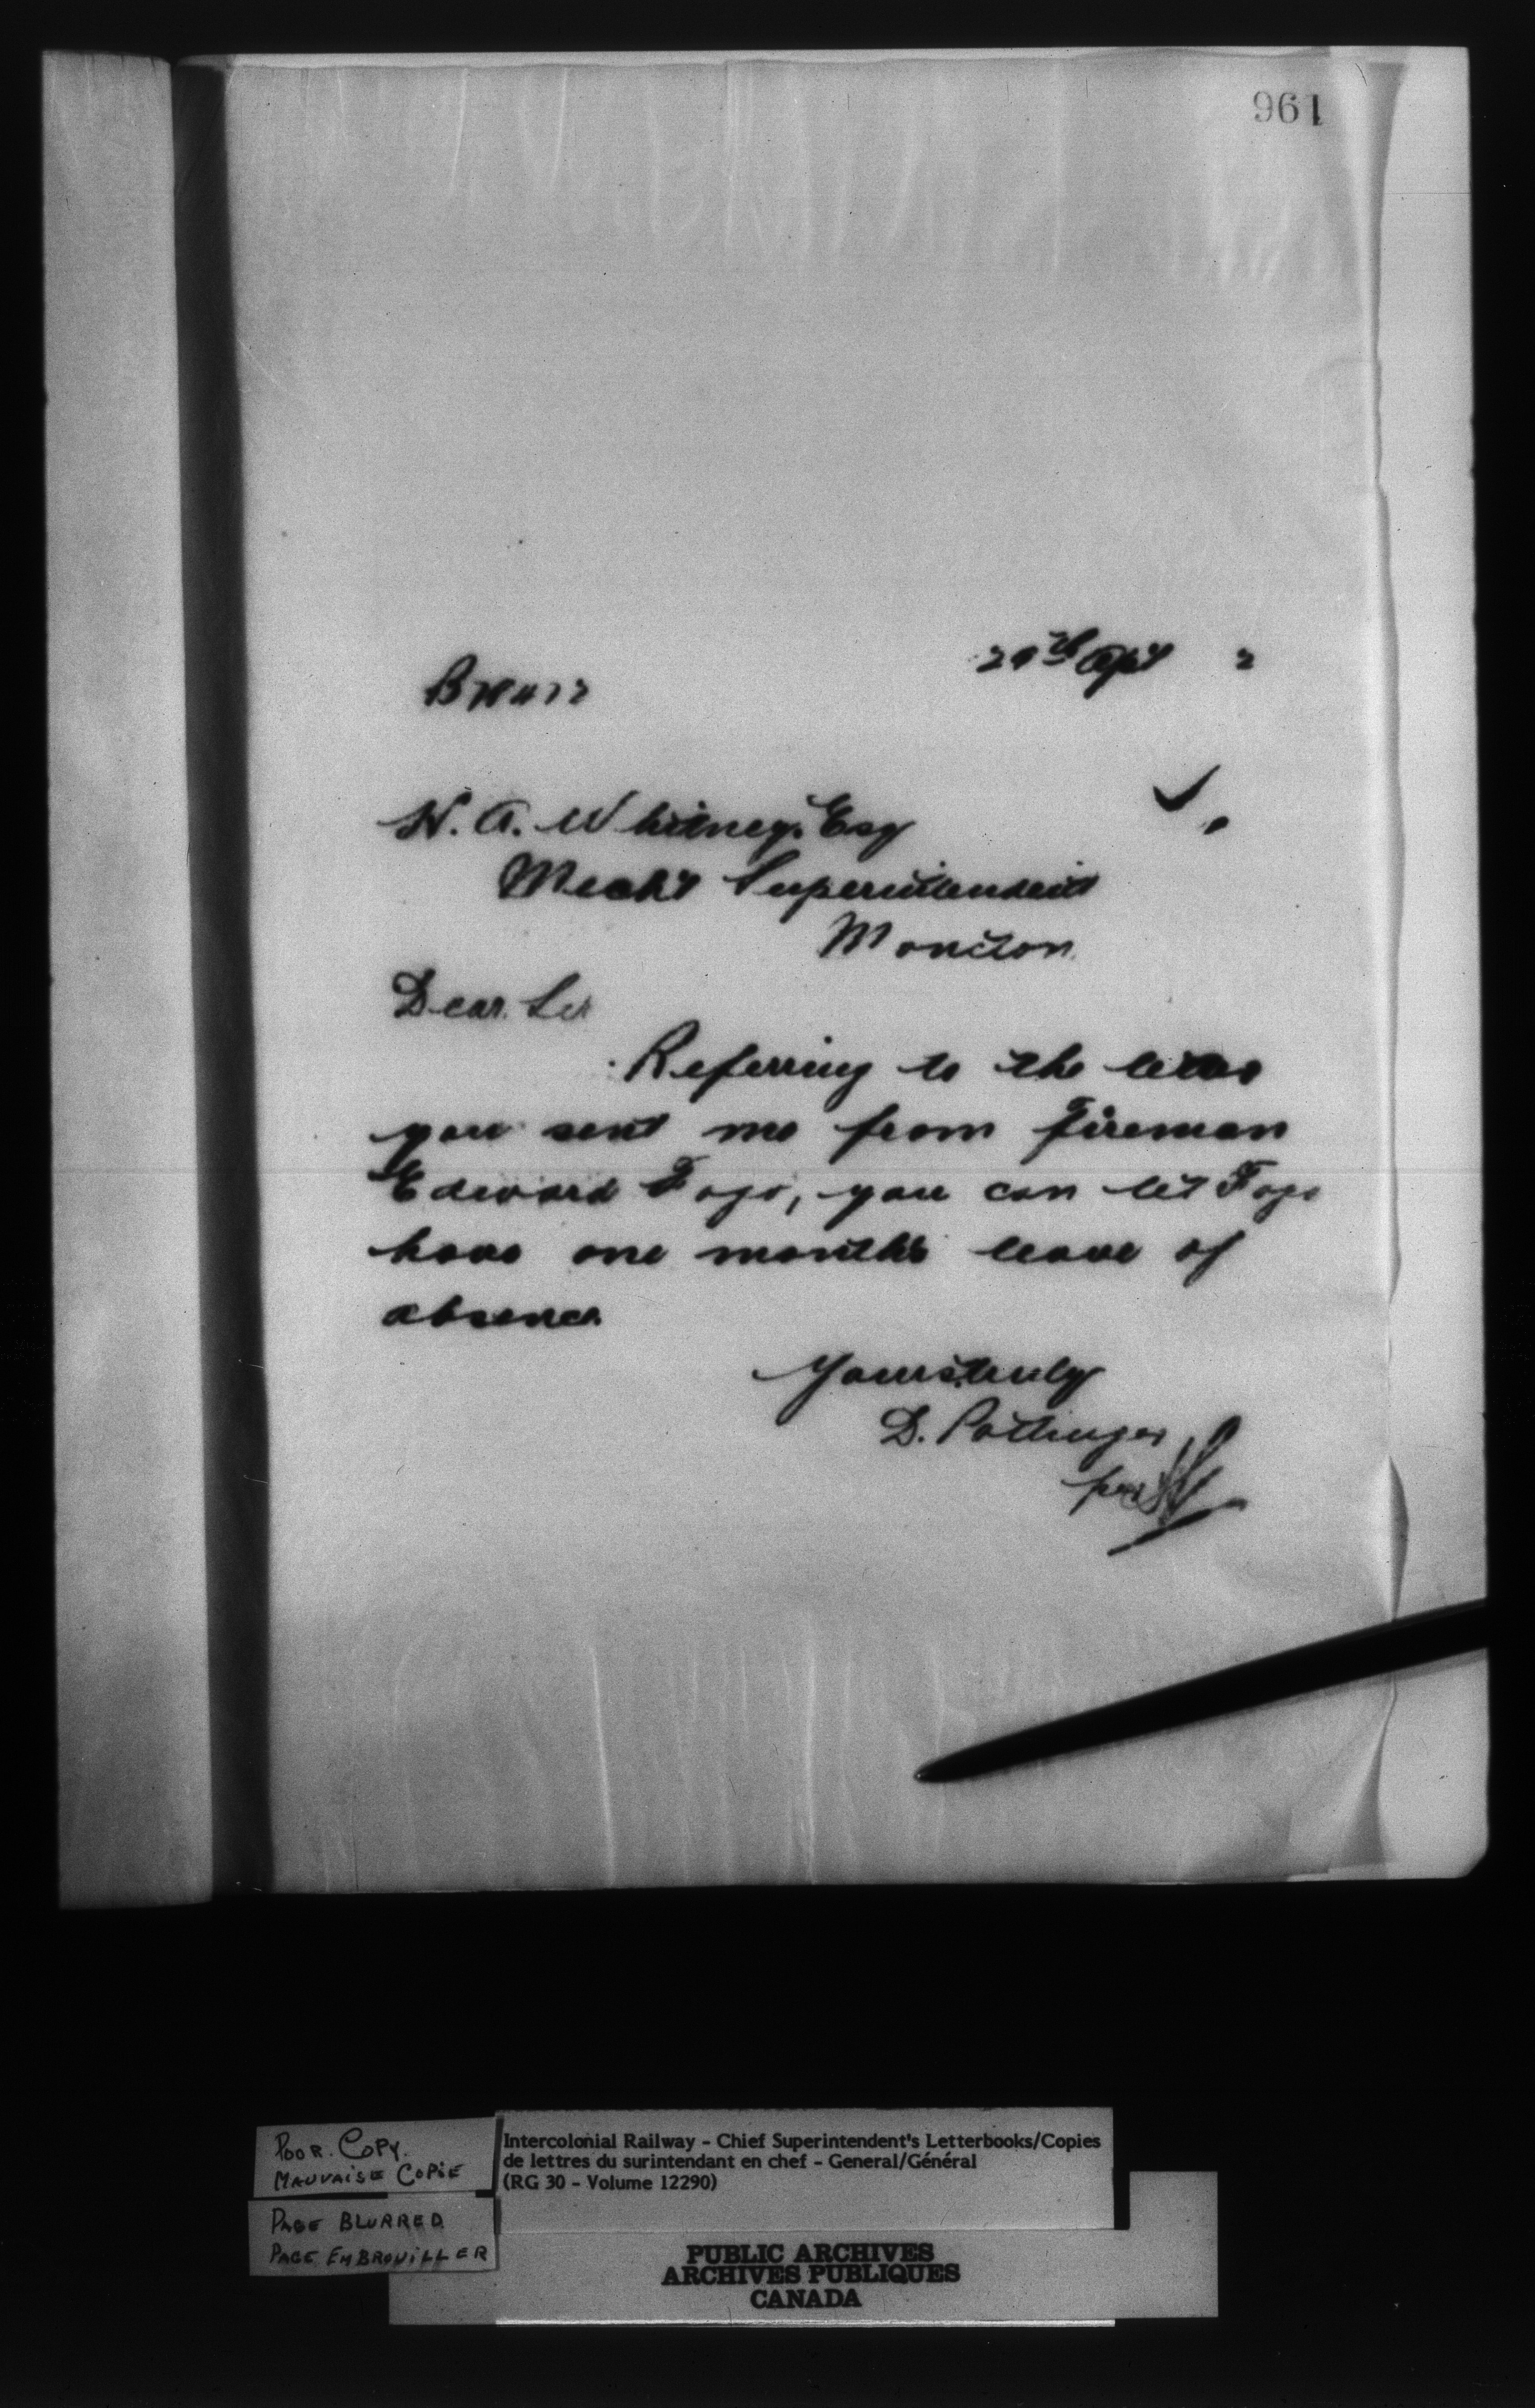 961
29th Apl 2
H. A. Whitney, Esq
Mech'l Superintendent
Moncton.
Dear Sir
Referring to the letter
you sent me from fireman
Edward Fogo, you can let Fogo
have one month's leave of
absence
Yours truly
D. Pottinger
per
POOR. COPY.
MAUVAISE COPIE
PAGE BLURRED
PAGE EMBROUILLER
Intercolonial Railway - Chief Superintendent's Letterbooks/Copies
de lettres du surintendant en chef - General/Général
(RG 30 - Volume 12290)
PUBLIC ARCHIVES
ARCHIVES PUBLIQUES
CANADA